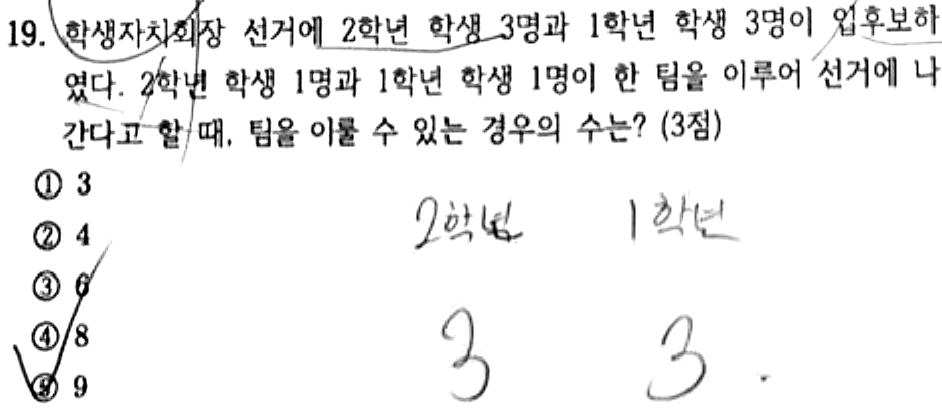 19. 학생자치회장 선거에 2학년 학생 3명과 1학년 학생 3명이 입후보하
였다. 2학년 학생 1명과 1학년 학생 1명이 한 팀을 이루어 선거에 나
간다고 할 때, 팀을 이룰 수 있는 경우의 수는? (3점)
① 3
② 4
③ 6
④ 8
⑤ 9
2학년 1학년
3 3